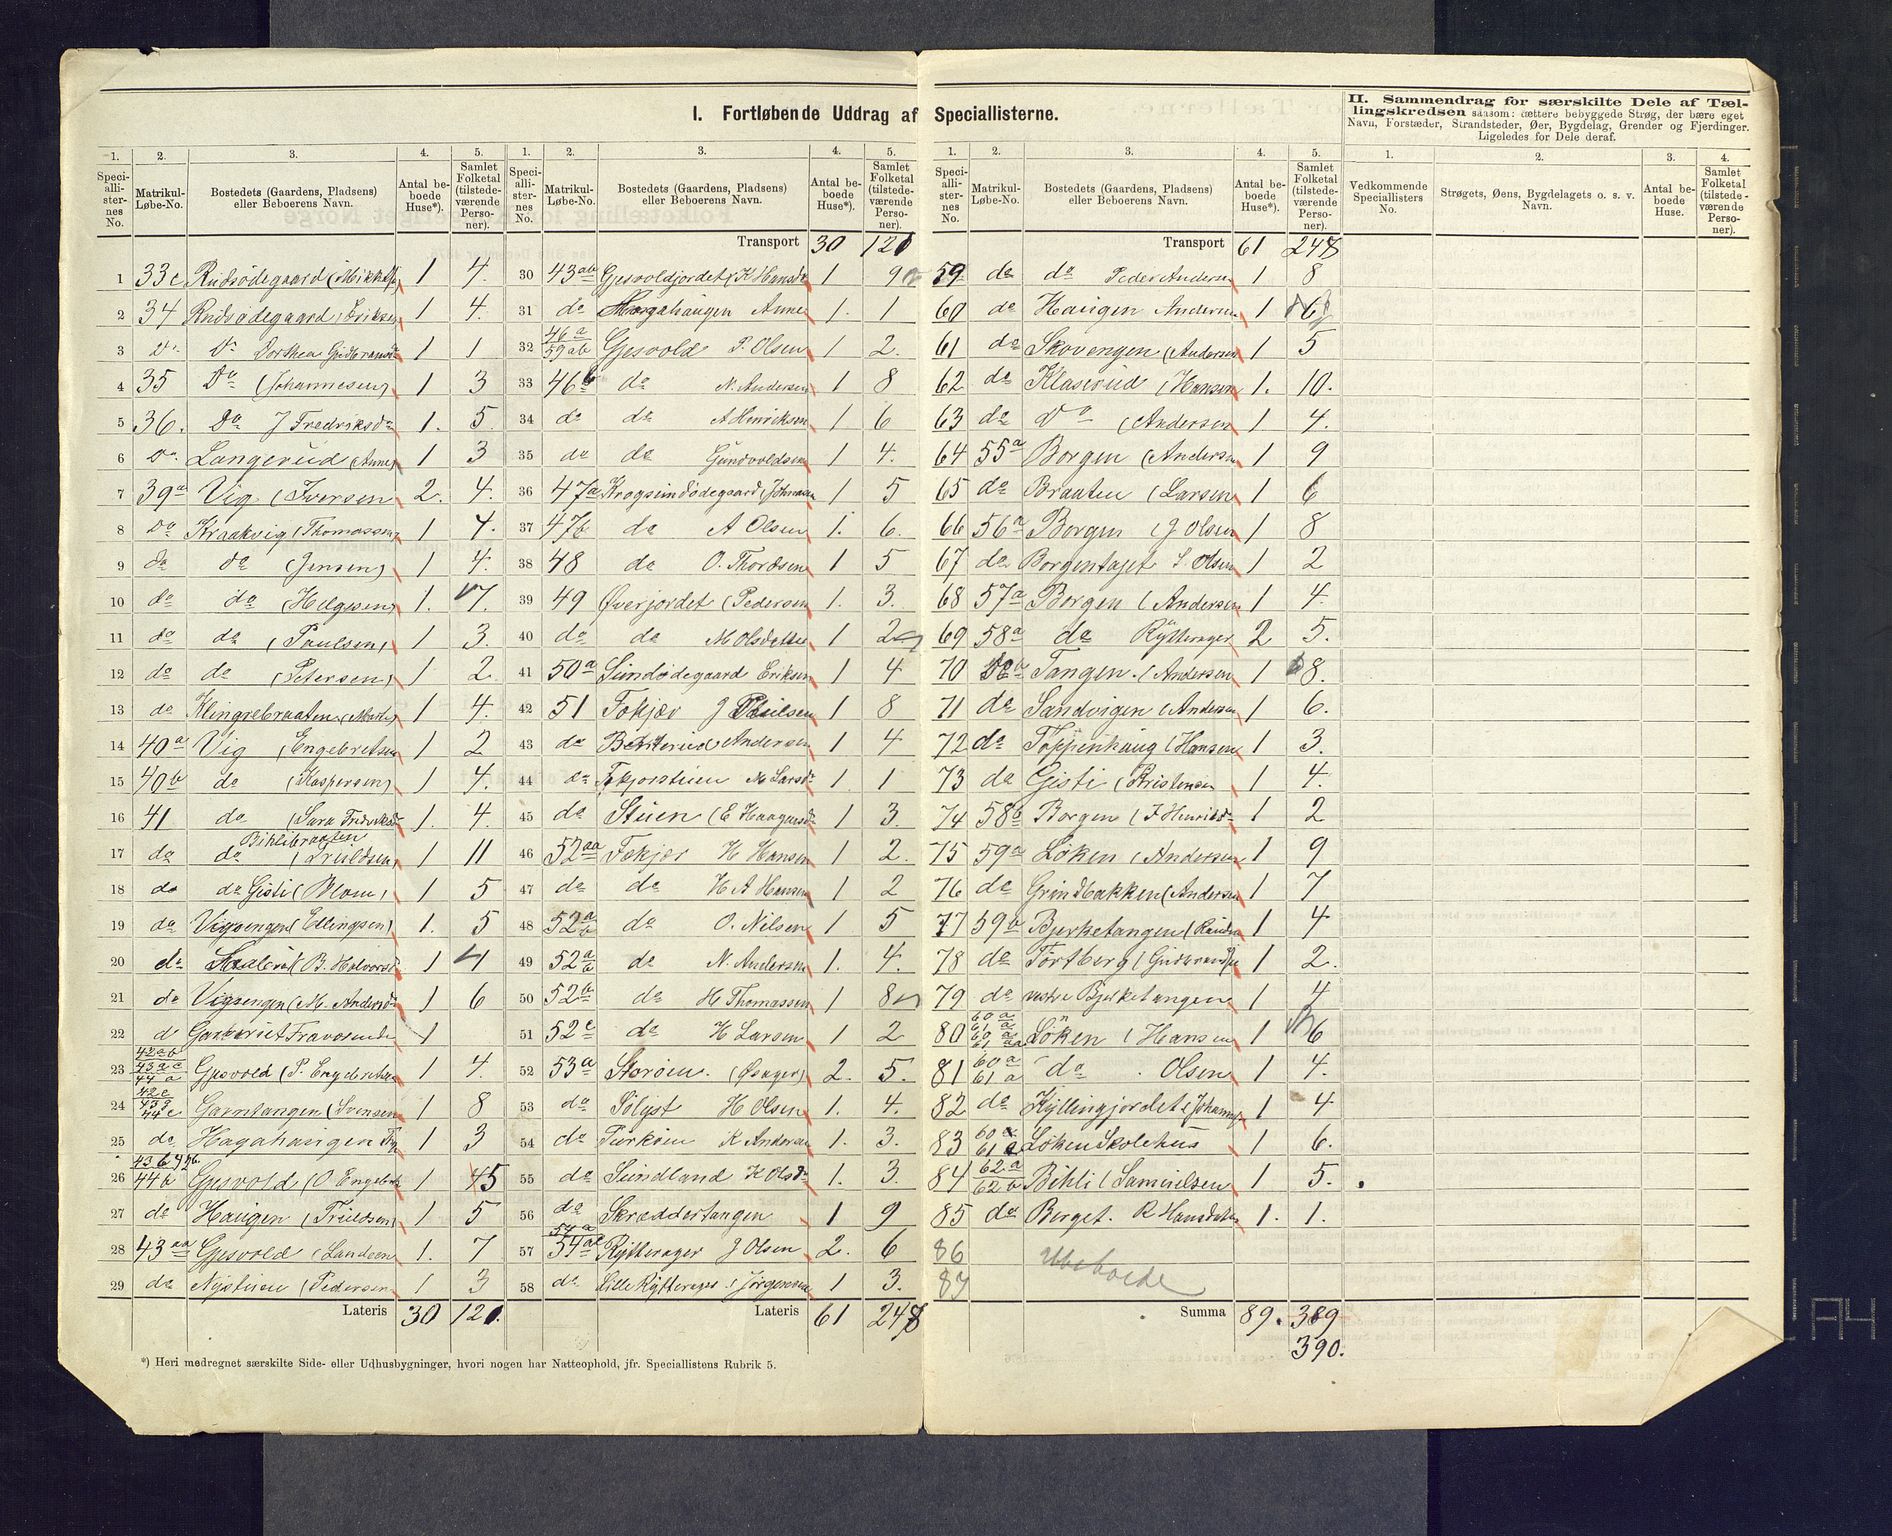 I. Fortløbende Uddrag af Speciallisterne.
II. Sammendrag for særskilte Dele af Tæl-
lingskredsen saasom: tættere bebyggede Strøg, der bære eget
Navn, Forstæder, Strandsteder, Øer, Bygdelag, Grender og Fjerdinger.
Ligeledes for Dele deraf.
1. 2. 3. 4. 5. 1. 2. 3. 4. 5. 1. 2. 3. 4. 5. 1. 2. 3. 4.
Speci-alli-ster-nes No. Matrikul-Løbe-No. Bostedets (Gaardens, Pladsens) eller Beboerens Navn. Antal be-boede Huse*). Samlet Folketal (tilstede-værende Perso-ner).
Speci-alli-ster-nes No. Matrikul-Løbe-No. Bostedets (Gaardens, Pladsens) eller Beboerens Navn. Antal be-boede Huse*). Samlet Folketal (tilstede-værende Perso-ner).
Speci-alli-ster-nes No. Matrikul-Løbe-No. Bostedets (Gaardens, Pladsens) eller Beboerens Navn. Antal be-boede Huse*). Samlet Folketal (tilstede-værende Perso-ner).
Vedkommende Speciallisters No. Strøgets, Øens, Bygdelagets o. s. v. Navn. Antal be-boede Huse. Samlet Folketal (tilstede-værende Perso-ner).
1 33c Rudsødegaard 1 4.
2 34 Rudsødegaard (Eriksen) 1 4.
3 Do Do Dorthea Gudbrandsd 1 1
4 35 Do (Johannesen) 1 3
5 36. Do J Fredriksd 1. 5.
6 Do Langerud (Anne) 1 3
7 39a Vig (Iversen 2. 4.
8 Do Kraakvig (Thomassen) 1 4.
9 do do (Jensen) 1 4.
10 do do (Helgesen) 1. 7.
11 do do (Paulsen) 1 3.
12 do do (Petersen) 1 2
13 do Klingrebraaten 1 4.
14 40a Vig (Engebretsen 1 2
15 40b do (Kaspersen) 1 4.
16 41 do (Lars Fredriksd 1. 4.
17 do do Bihlibraaten (Truldsen) 1 11
18 do do Gisti (Blom) 1 5
19 do Vigsengen (Ellingsen) 1. 5
20 do B. Halvorsd 1 4
21 do Vigsengen (M. Andersd 1 6
22 d 1
23 42ab 43ac 44a Gjesvold (P. Engebretsen 1 4.
24 42c 43g 44c Garntangen (Svensen 1 8
25 do Hagahaugen 1 3
26 43b 42b. 44b Gjesvold (O Engebr 1 5
27 do Haugen (Truldsen) 1 5
28 43aa Gjesvold (Landeen 1. 7
29 do Nystuen (Pedersen 1 3
Lateris 30 120.
Transport 30 120
30 43ab Gjesvoldjordet (K Hansd 1 9
31 do Hagahaugen Anne 1. 1
32 46a 59ab Gjesvold P. Olsen 1 2.
33 46b do N. Andersen 1 8
34 do do A Hinriksen 1 6
35 do do Gundvoldsen 1 4.
36 47a Krogsundødegaard (Johnsen 1 5
37 47b do A Olsen 1. 6.
38 48 do O. Thordsen 1 5
39 49 Øverjordet (Pedersen 1. 3.
40 do do M Olsdatter 1 2
41 50a Sundødegaard Eriksen 1 4
42 51 Fokjær J Paulsen 1 8
43 do Andersen 1 4
44 do Fokjørstuen M Larsd 1. 1
45 do Stuen (E Haagensd 1 3.
46 52aa Fokjær H Hansen 1 2.
47 do do H A Hansen 1 2
48 52a b do O. Nilsen 1 5
49 52a b do N. Andersen 1. 4.
50 52b do H Thomassen 1 8
51 52c do H Larsen 1 2
52 53a Storøen. 2. 5.
53 do Sølyst H Olsen 1. 4.
54 do Turkøen K Andersen 1. 3.
55 do Sundland K Olsd 1. 3.
56 do Skræddertangen 1 9
57 54a 54ae Rytterager J Olsen 2. 6
58 do Lille Rytterager (Jørgensen 1 3.
Lateris 61 248
Transport 61 248
59 do do Peder Andersen 1 8
60 do Haugen Andersen 1 6
61 do Skovengen (Andersen 1 5
62 do Klaserud (Hansen 1. 10.
63 do Do (Andersen 1 4.
64 55a Borgen (Andersen 1 9
65 do Braaten (Larsen 1 6
66 56a Borgen (J Olsen 1 8
67 do Borgentajet S. Olsen 1 2
68 57a Borgen (Andersen 1 4.
69 58a do Rytterager 2 5.
70 Tangen. (Andersen 1 8.
71 do Sandvigen (Andersen 1 6.
72 do Toppenhaug (Hansen 1 3.
73 do Gisti (Kristensen 1 4.
74 58b Borgen 1 2
75 59a Løken (Andersen 1 9
76 do Grindbakken (Andersen 1 7
77 59b Bjerketangen 1 4
78 do Tortberg 1 2.
79 do vestre Bjerketangen 1 4
80 60a 61a 60aa 61aa Løken (Hansen 1 6
81 60a 61a do Olsen 1 4.
82 do Kyllingjordet (Johannes 1 4
83 60a 61a Løken Skolehus 1 6.
84 62a 62b Bihli (Samuelsen 1 5.
85 do Berget. R Hansdatter 1. 1.
86 Ubeboede
87
Summa 89. 389
390.
*) Heri medregnet særskilte Side- eller Udhusbygninger, hvori nogen har Natteophold, jfr. Speciallistens Rubrik 5.